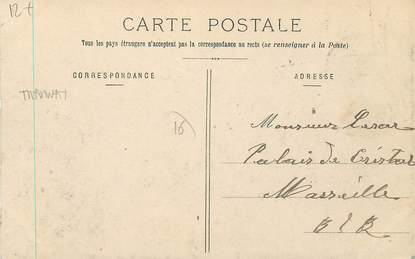 12+
CARTE POSTALE
Tous les pays étrangers n'acceptent pas la correspondance au recto (se renseigner à la Poste)
CORRESPONDANCE
ADRESSE
TRAMWAY
10
Monsieur
Palais de Cristal
Marseille
B d R